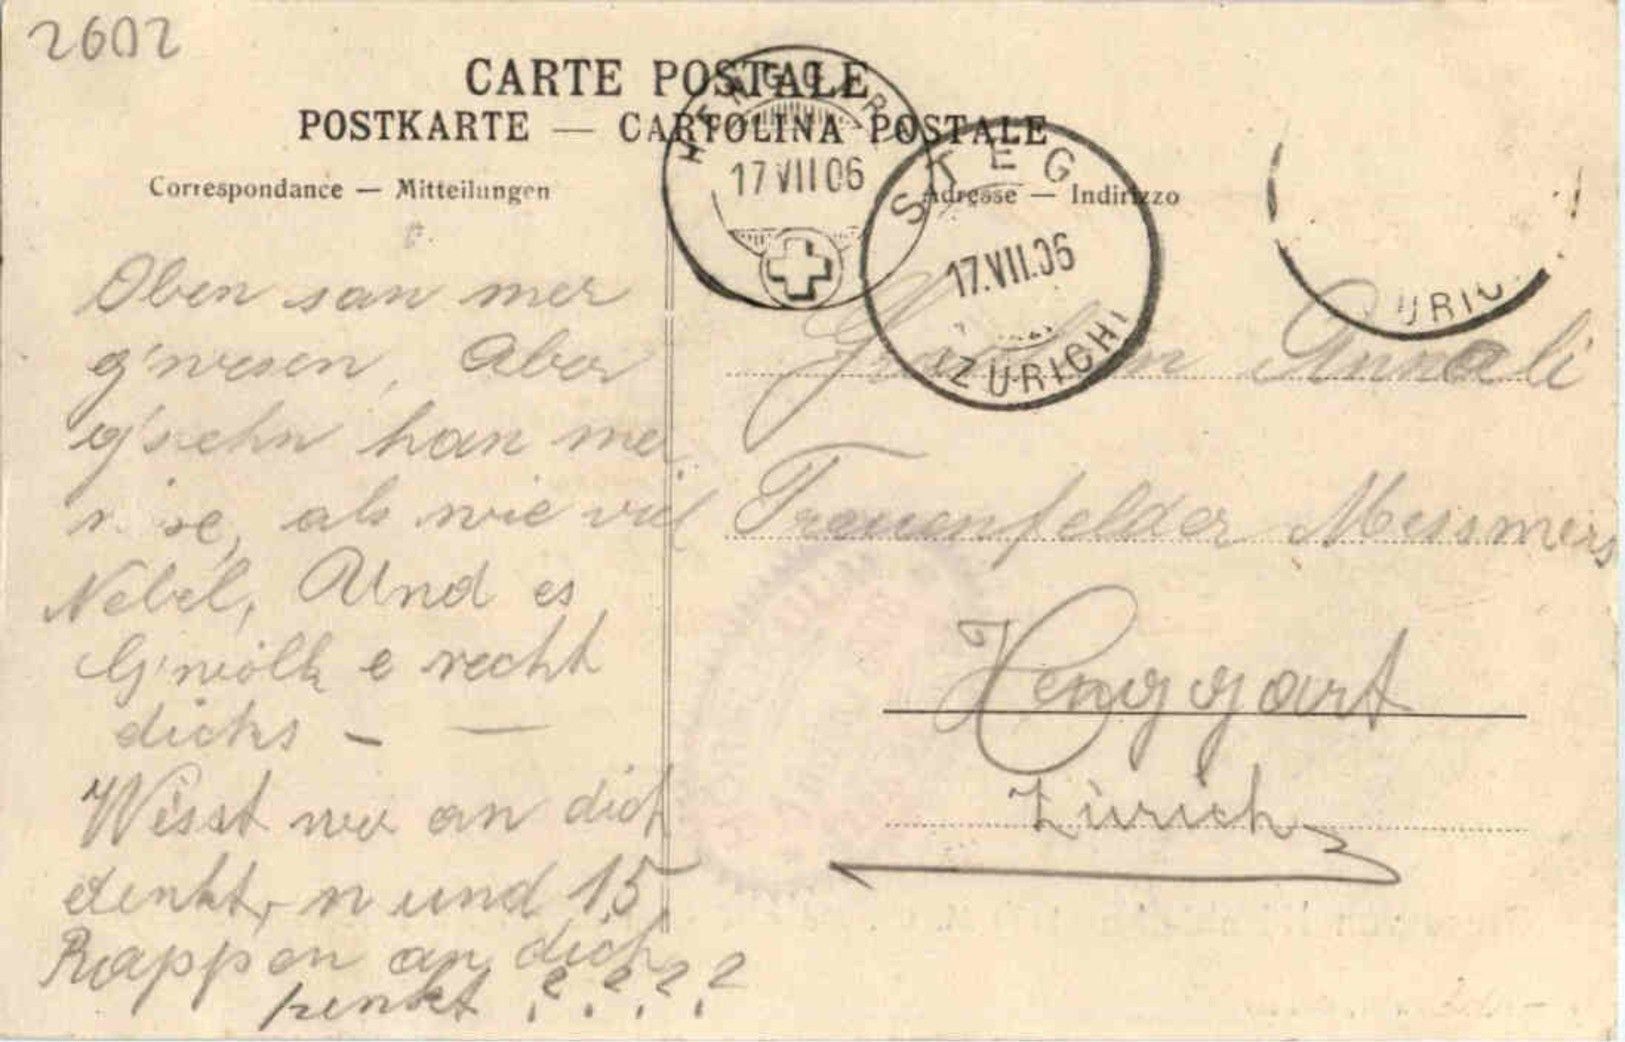 2602
CARTE POSTALE
POSTKARTE — CARTOLINA POSTALE
Correspondance — Mitteilungen
Adresse — Indirizzo
HENGGART
17 VII 06
STEG
17.VII.06
(ZÜRICH)
Oben san mer
g'wesen, Aber
g'sehn han mer
als wie viel
Nebel, Und es
G'wölk e recht
dicks — —
Wisst wer an dich
denkt, n und 15
Rappen an dich
henkt ? ? ? ?
Fräulein Annali
Frauenfelder Messmers
Henggart
Zürich